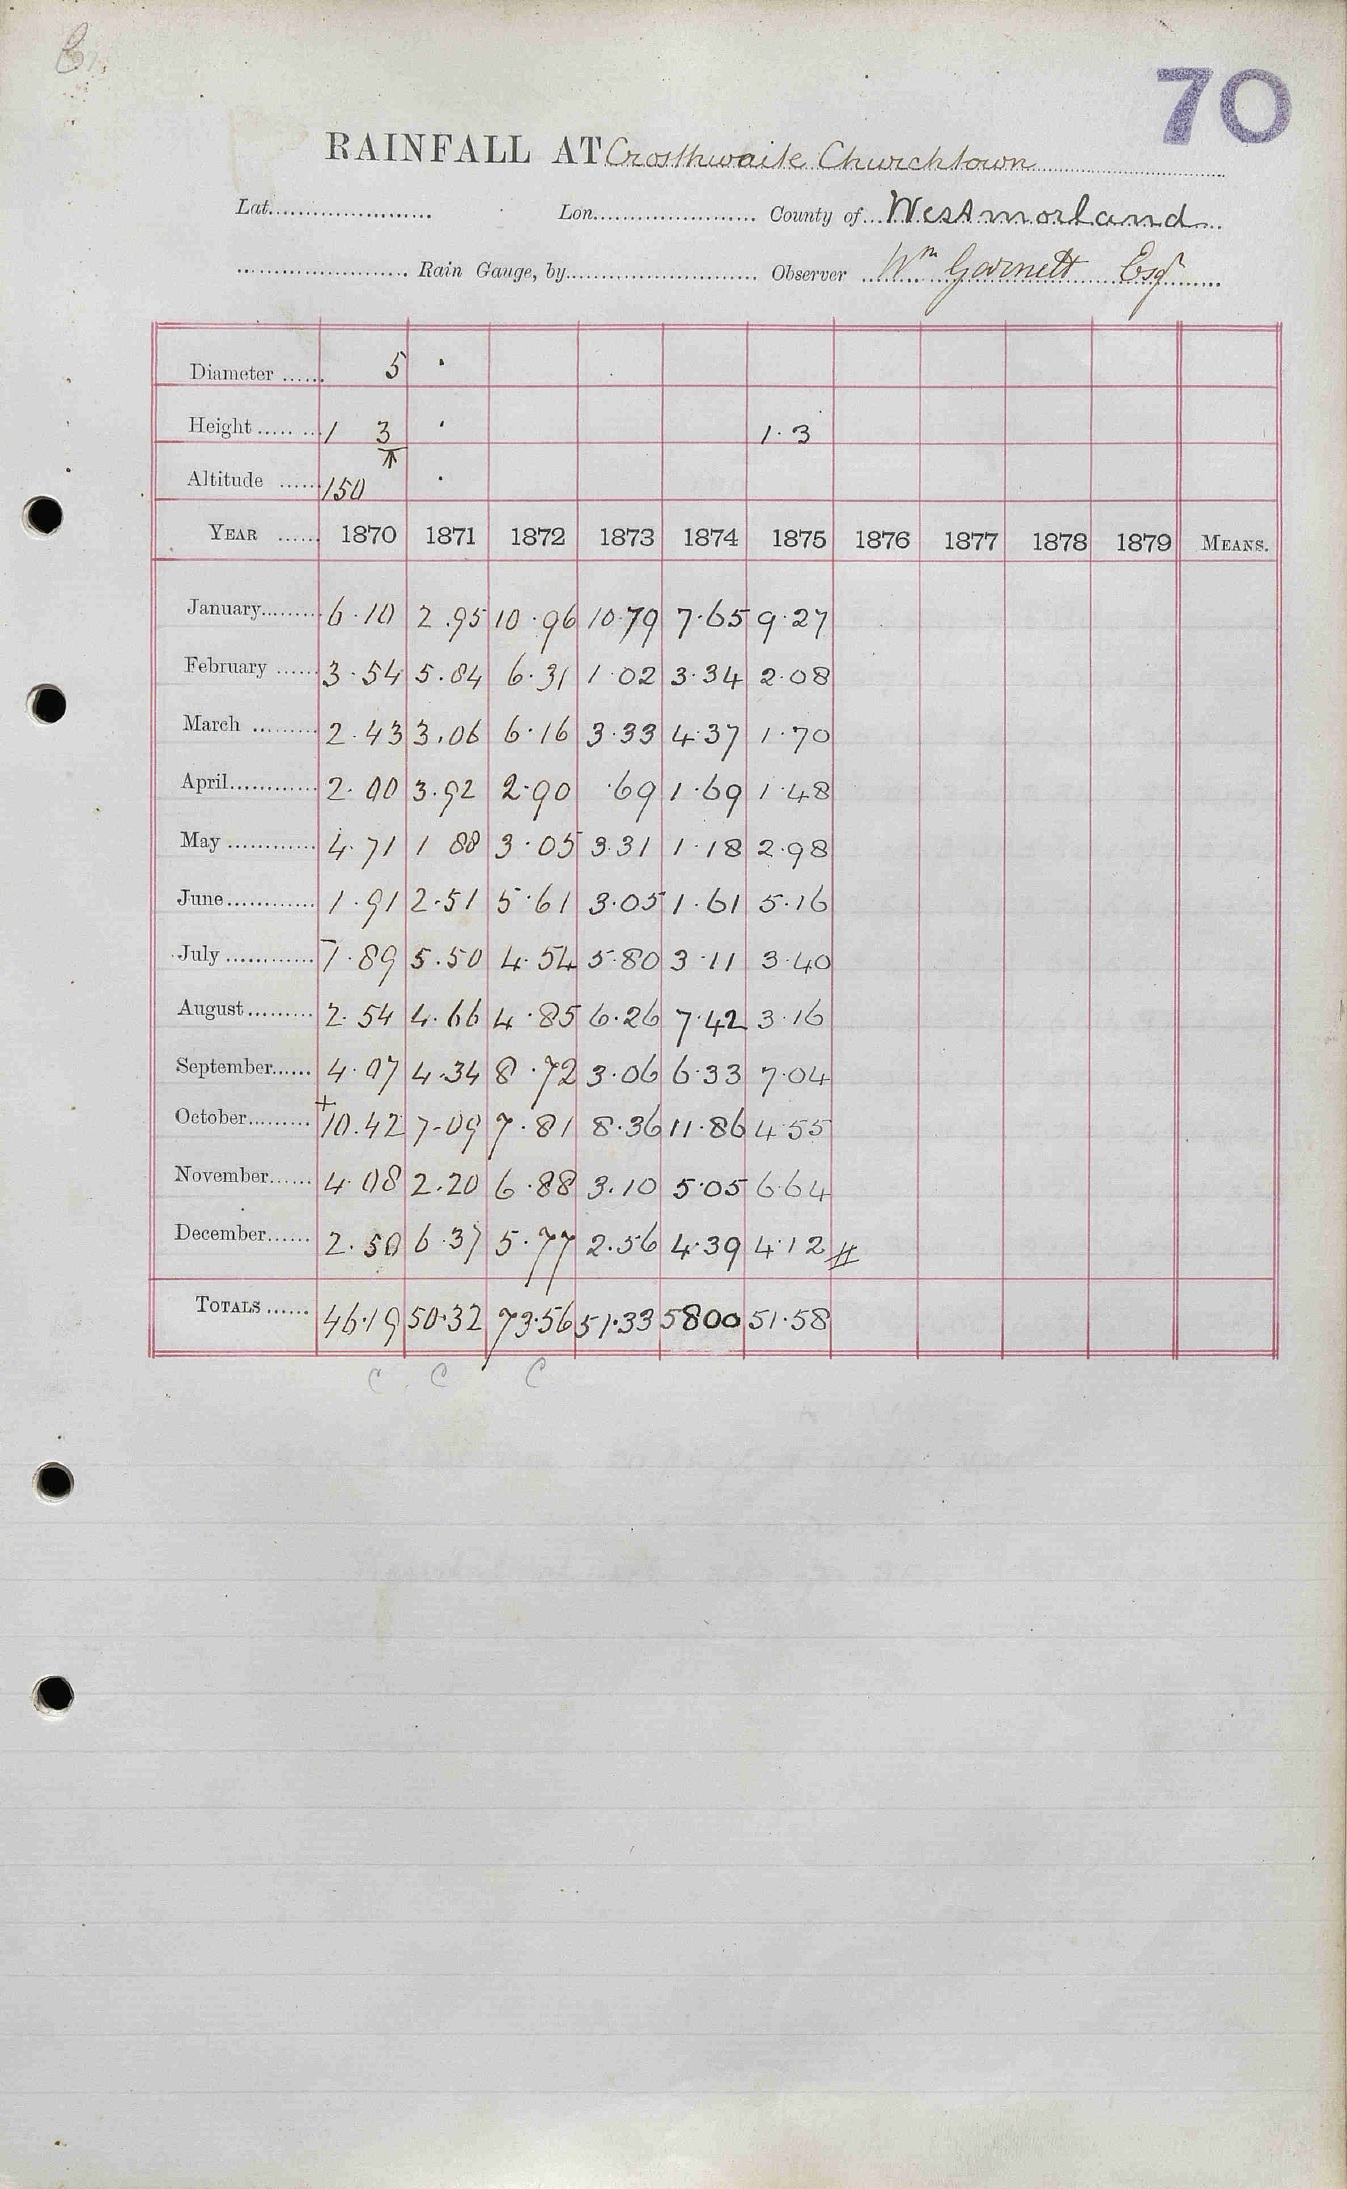 70
RAINFALL AT Crosthwaite Churchtown
Lat. Lon. County of Westmorland
Rain Gauge, by Observer Wm Garnett Esqr
Diameter 5 ·
Height 1 3 · 1·3
Altitude 150 ·
YEAR 1870 1871 1872 1873 1874 1875 1876 1877 1878 1879 MEANS.
January 6·10 2.95 10·96 10·79 7·65 9·27
February 3·54 5.84 6·31 1·02 3·34 2·08
March 2·43 3.06 6·16 3·33 4·37 1·70
April 2·00 3.92 2·90 ·69 1·69 1·48
May 4·71 1 88 3·05 3·31 1·18 2·98
June 1·91 2·51 5·61 3·05 1·61 5·16
July 1·89 5.50 4·54 5·80 3·11 3·40
August 2·54 4.66 4·85 6·26 7·42 3·16
September 4·07 4.34 8·72 3·06 6·33 7·04
October +10.42 7-09 7·81 8·36 11·86 4·55
November 4·08 2.20 6·88 3.10 5·05 6·64
December 2·50 6·37 5·77 2·56 4·39 4·12 #
TOTALS 46·19 50·32 73·56 51·33 5800 51·58
C C C